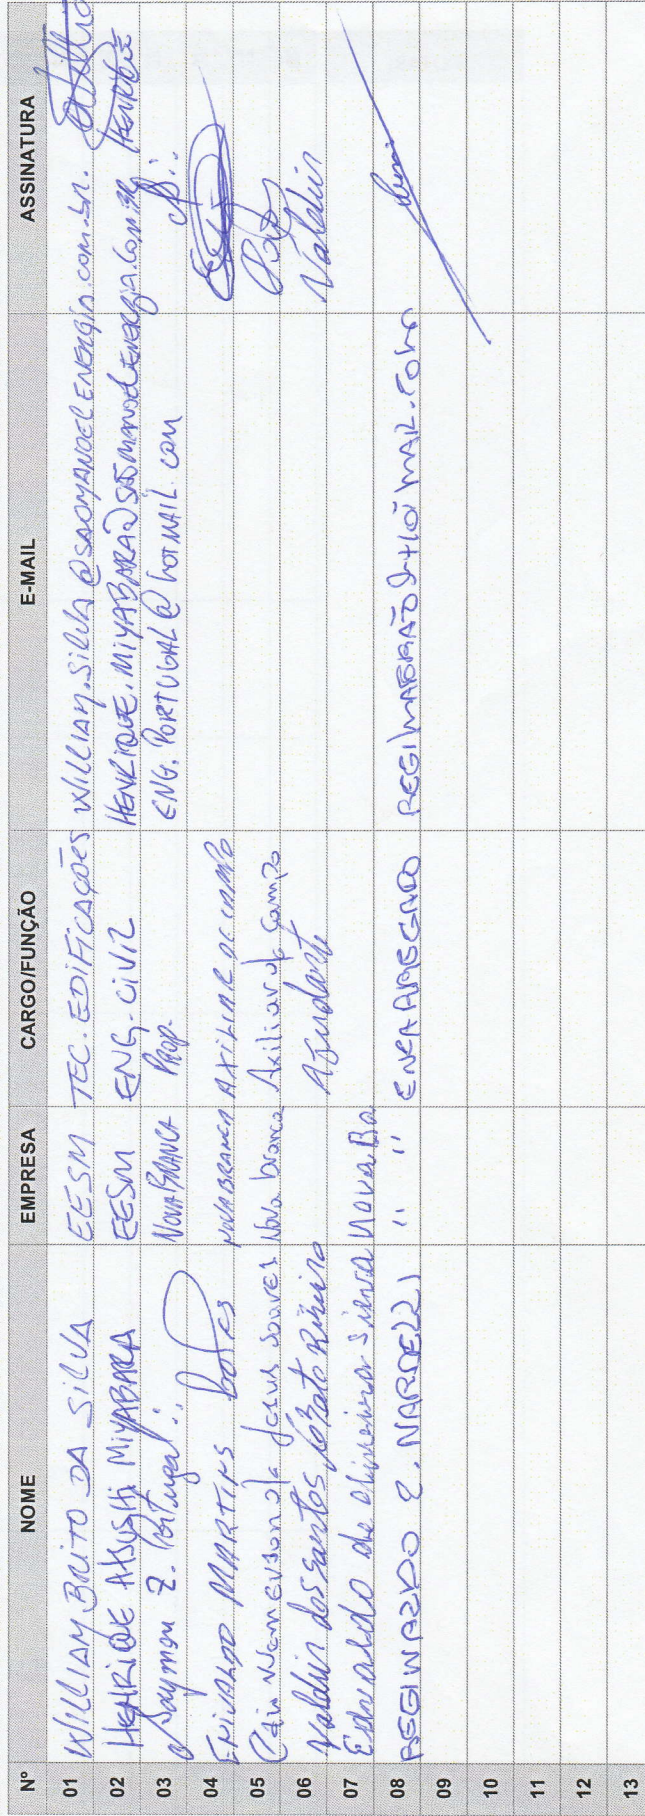 Nº NOME EMPRESA CARGO/FUNÇÃO E-MAIL ASSINATURA
01 WILLIAM BRITO DA SILVA EESM TEC. EDIFICAÇÕES WILLIAM.SILVA@SAOMANOELENERGIA.COM.BR.
02 HENRIQUE ATSUSHI MIYABARA EESM ENG. CIVIL HENRIQUE.MIYABARA@SAOMANOELENERGIA.COM.BR HENRIQUE
03 Saymon Z. Portugal NOVA BRANCA PROP. ENG.PORTUGAL@HOTMAIL.COM
04 ENIVALDO MARTINS NOVA BRANCA AXILIAR DE CAMPO
05 de Jesus Soares Nova branca Axiliar de Campo
06 Valdir dos Santos Ribeiro Ajudante Valdir
07 Edvaldo de Oliveira Nova Ba
08 REGINALDO NARDELLI " " ENCARREGADO
09
10
11
12
13